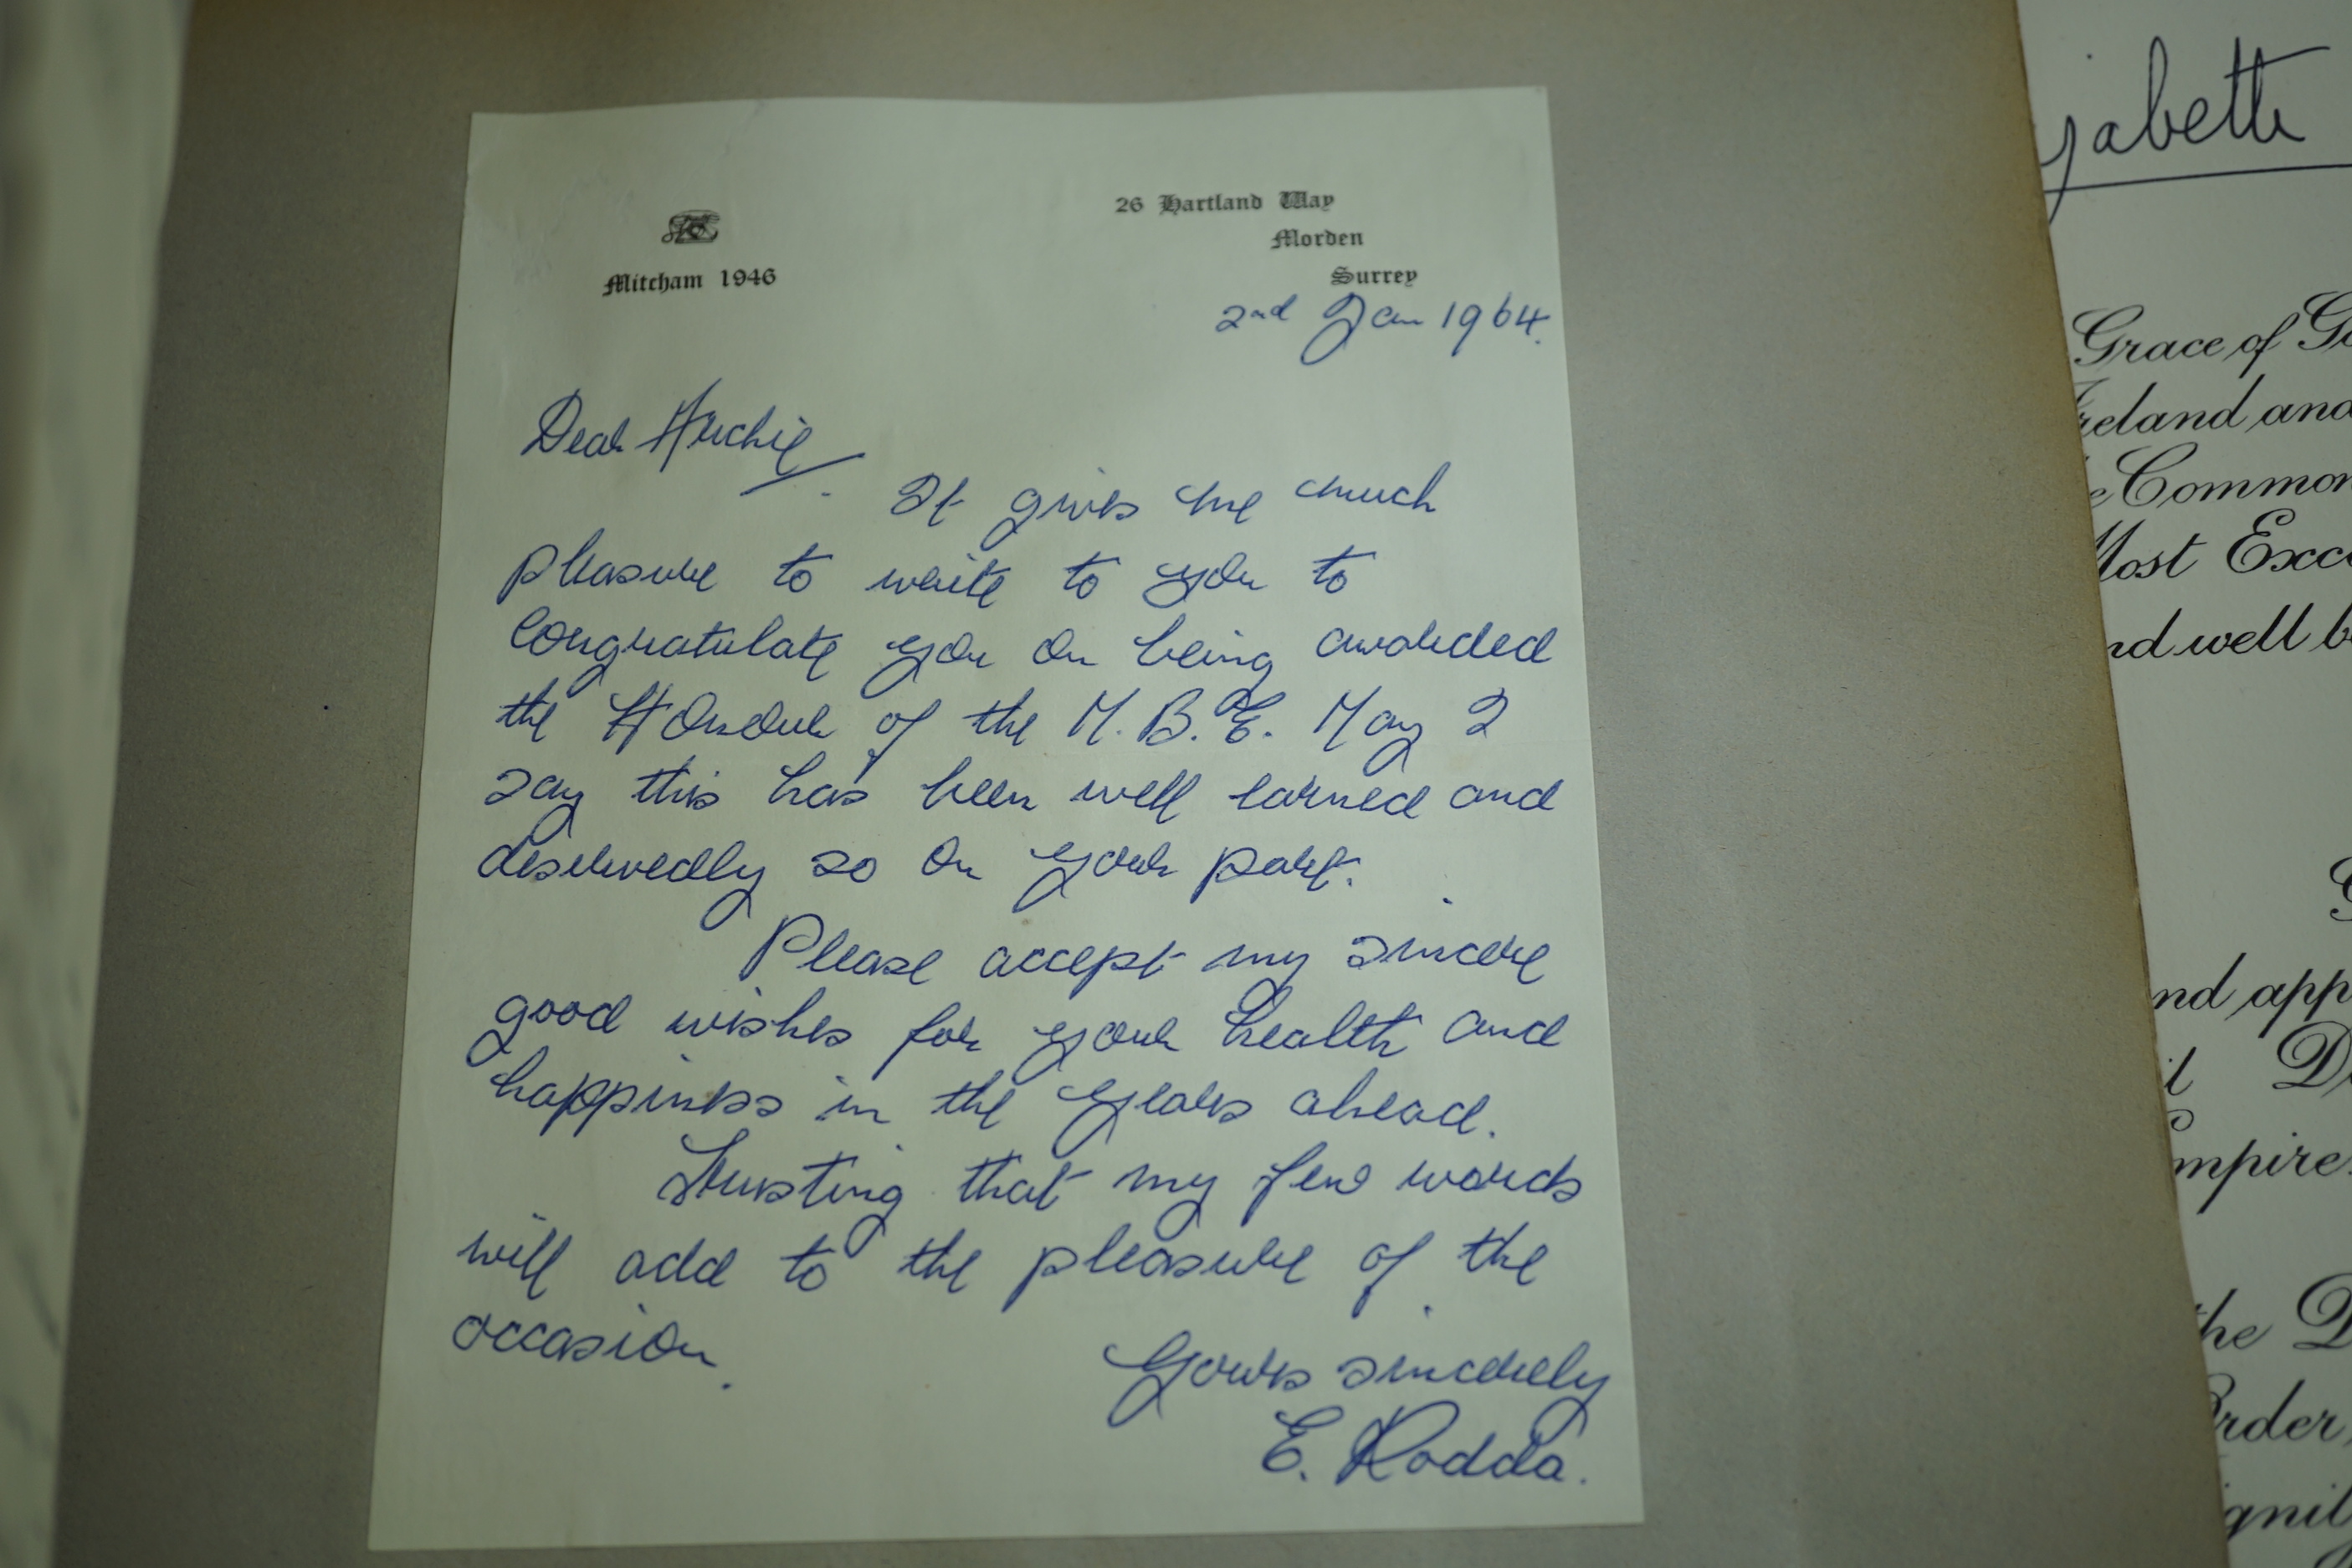 26 Hartland Way
Morden
Surrey
Mitcham 1946
2nd Jan 1964.
Dear Archie
It gives me much
pleasure to write to you to
congratulate you on being awarded
the Honour of the M.B.E. May I
say this has been well earned and
deservedly so on your part.
Please accept my sincere
good wishes for your health and
happiness in the years ahead.
Trusting that my few words
will add to the pleasure of the
occasion.
Yours sincerely
E. Rodda.
zabeth
Grace of Go
Ireland and
e Common
Most Exce
nd well be
G
nd app
il D
mpire
the D
Order,
ignit